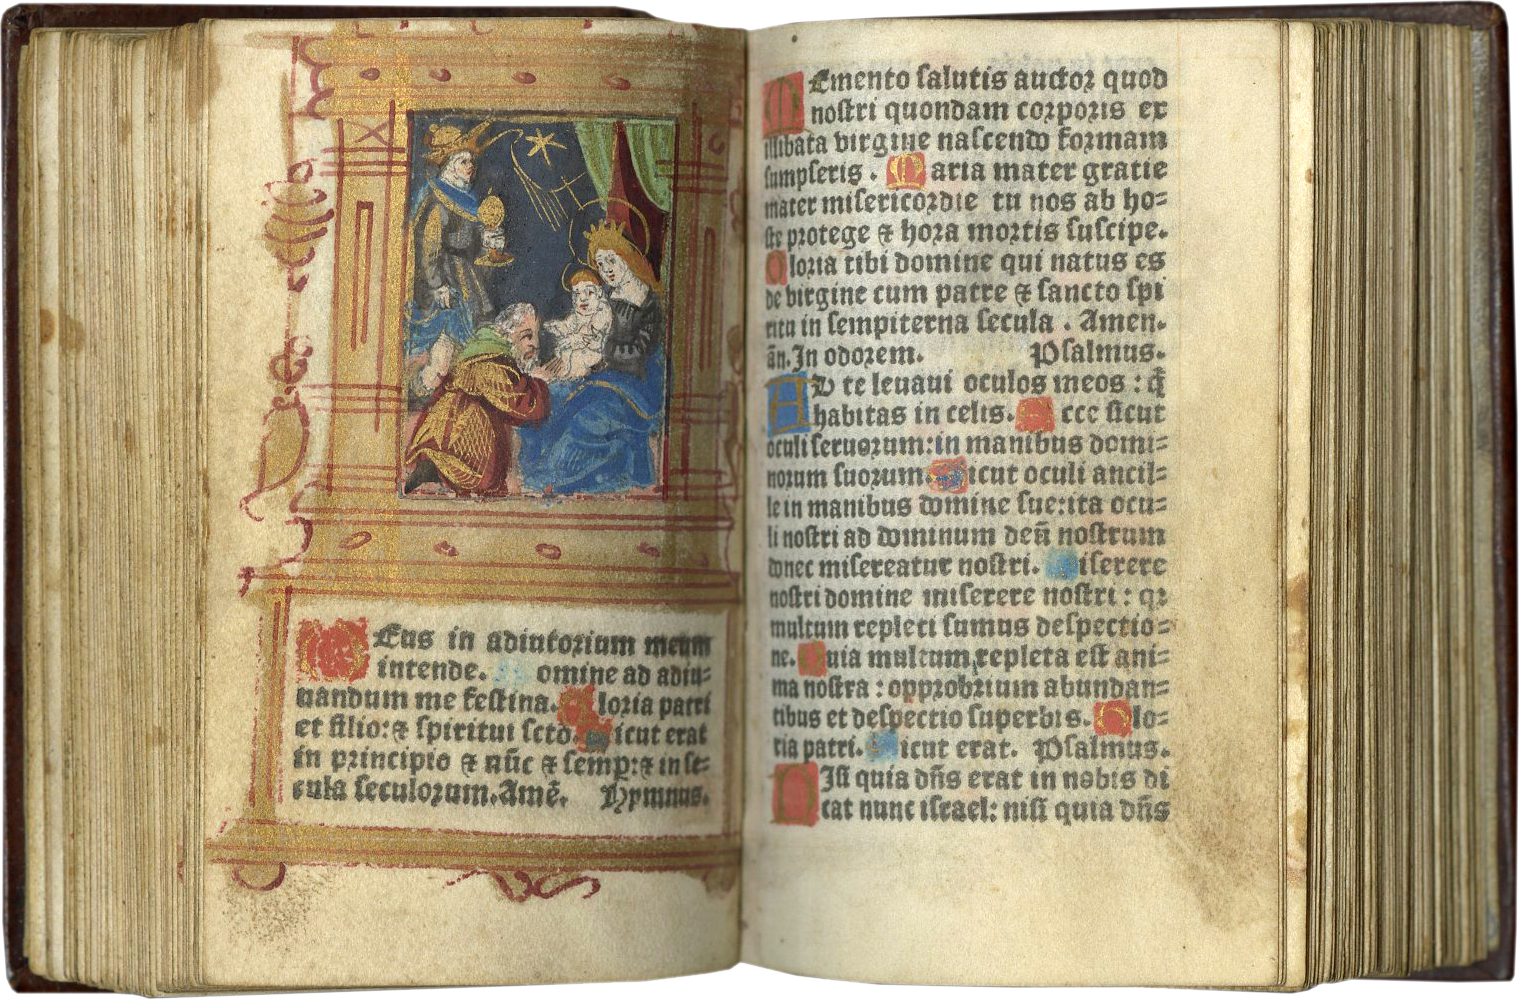 Deus in adiutorium meum
intende. Domine ad adiu⸗
uandum me festina. Gloria patri
et filio: ⁊ spiritui scto. Sicut erat
in principio ⁊ nūc ⁊ semp: ⁊ in se⸗
cula seculorum. Amē. Hymnus.
Memento salutis auctor quod
nostri quondam corporis ex
illibata virgine nascendo formam
sumpseris. Maria mater gratie
mater misericordie tu nos ab ho⸗
ste protege ⁊ hora mortis suscipe.
Gloria tibi domine qui natus es
de virgine cum patre ⁊ sancto spi
ritu in sempiterna secula. Amen.
añ. In odorem. Psalmus.
AD te leuaui oculos meos: q̄
habitas in celis. Ecce sicut
oculi seruorum: in manibus domi⸗
norum suorum. Sicut oculi ancil⸗
le in manibus domine sue: ita ocu⸗
li nostri ad dominum deū nostrum
donec misereatur nostri. Miserere
nostri domine miserere nostri: qꝛ
multum repleti sumus despectio⸗
ne. Quia multum repleta est ani⸗
ma nostra: opprobrium abundan⸗
tibus et despectio superbis. Glo⸗
ria patri. Sicut erat. Psalmus.
NIsi quia dn̄s erat in nobis di
cat nunc israel: nisi quia dn̄s